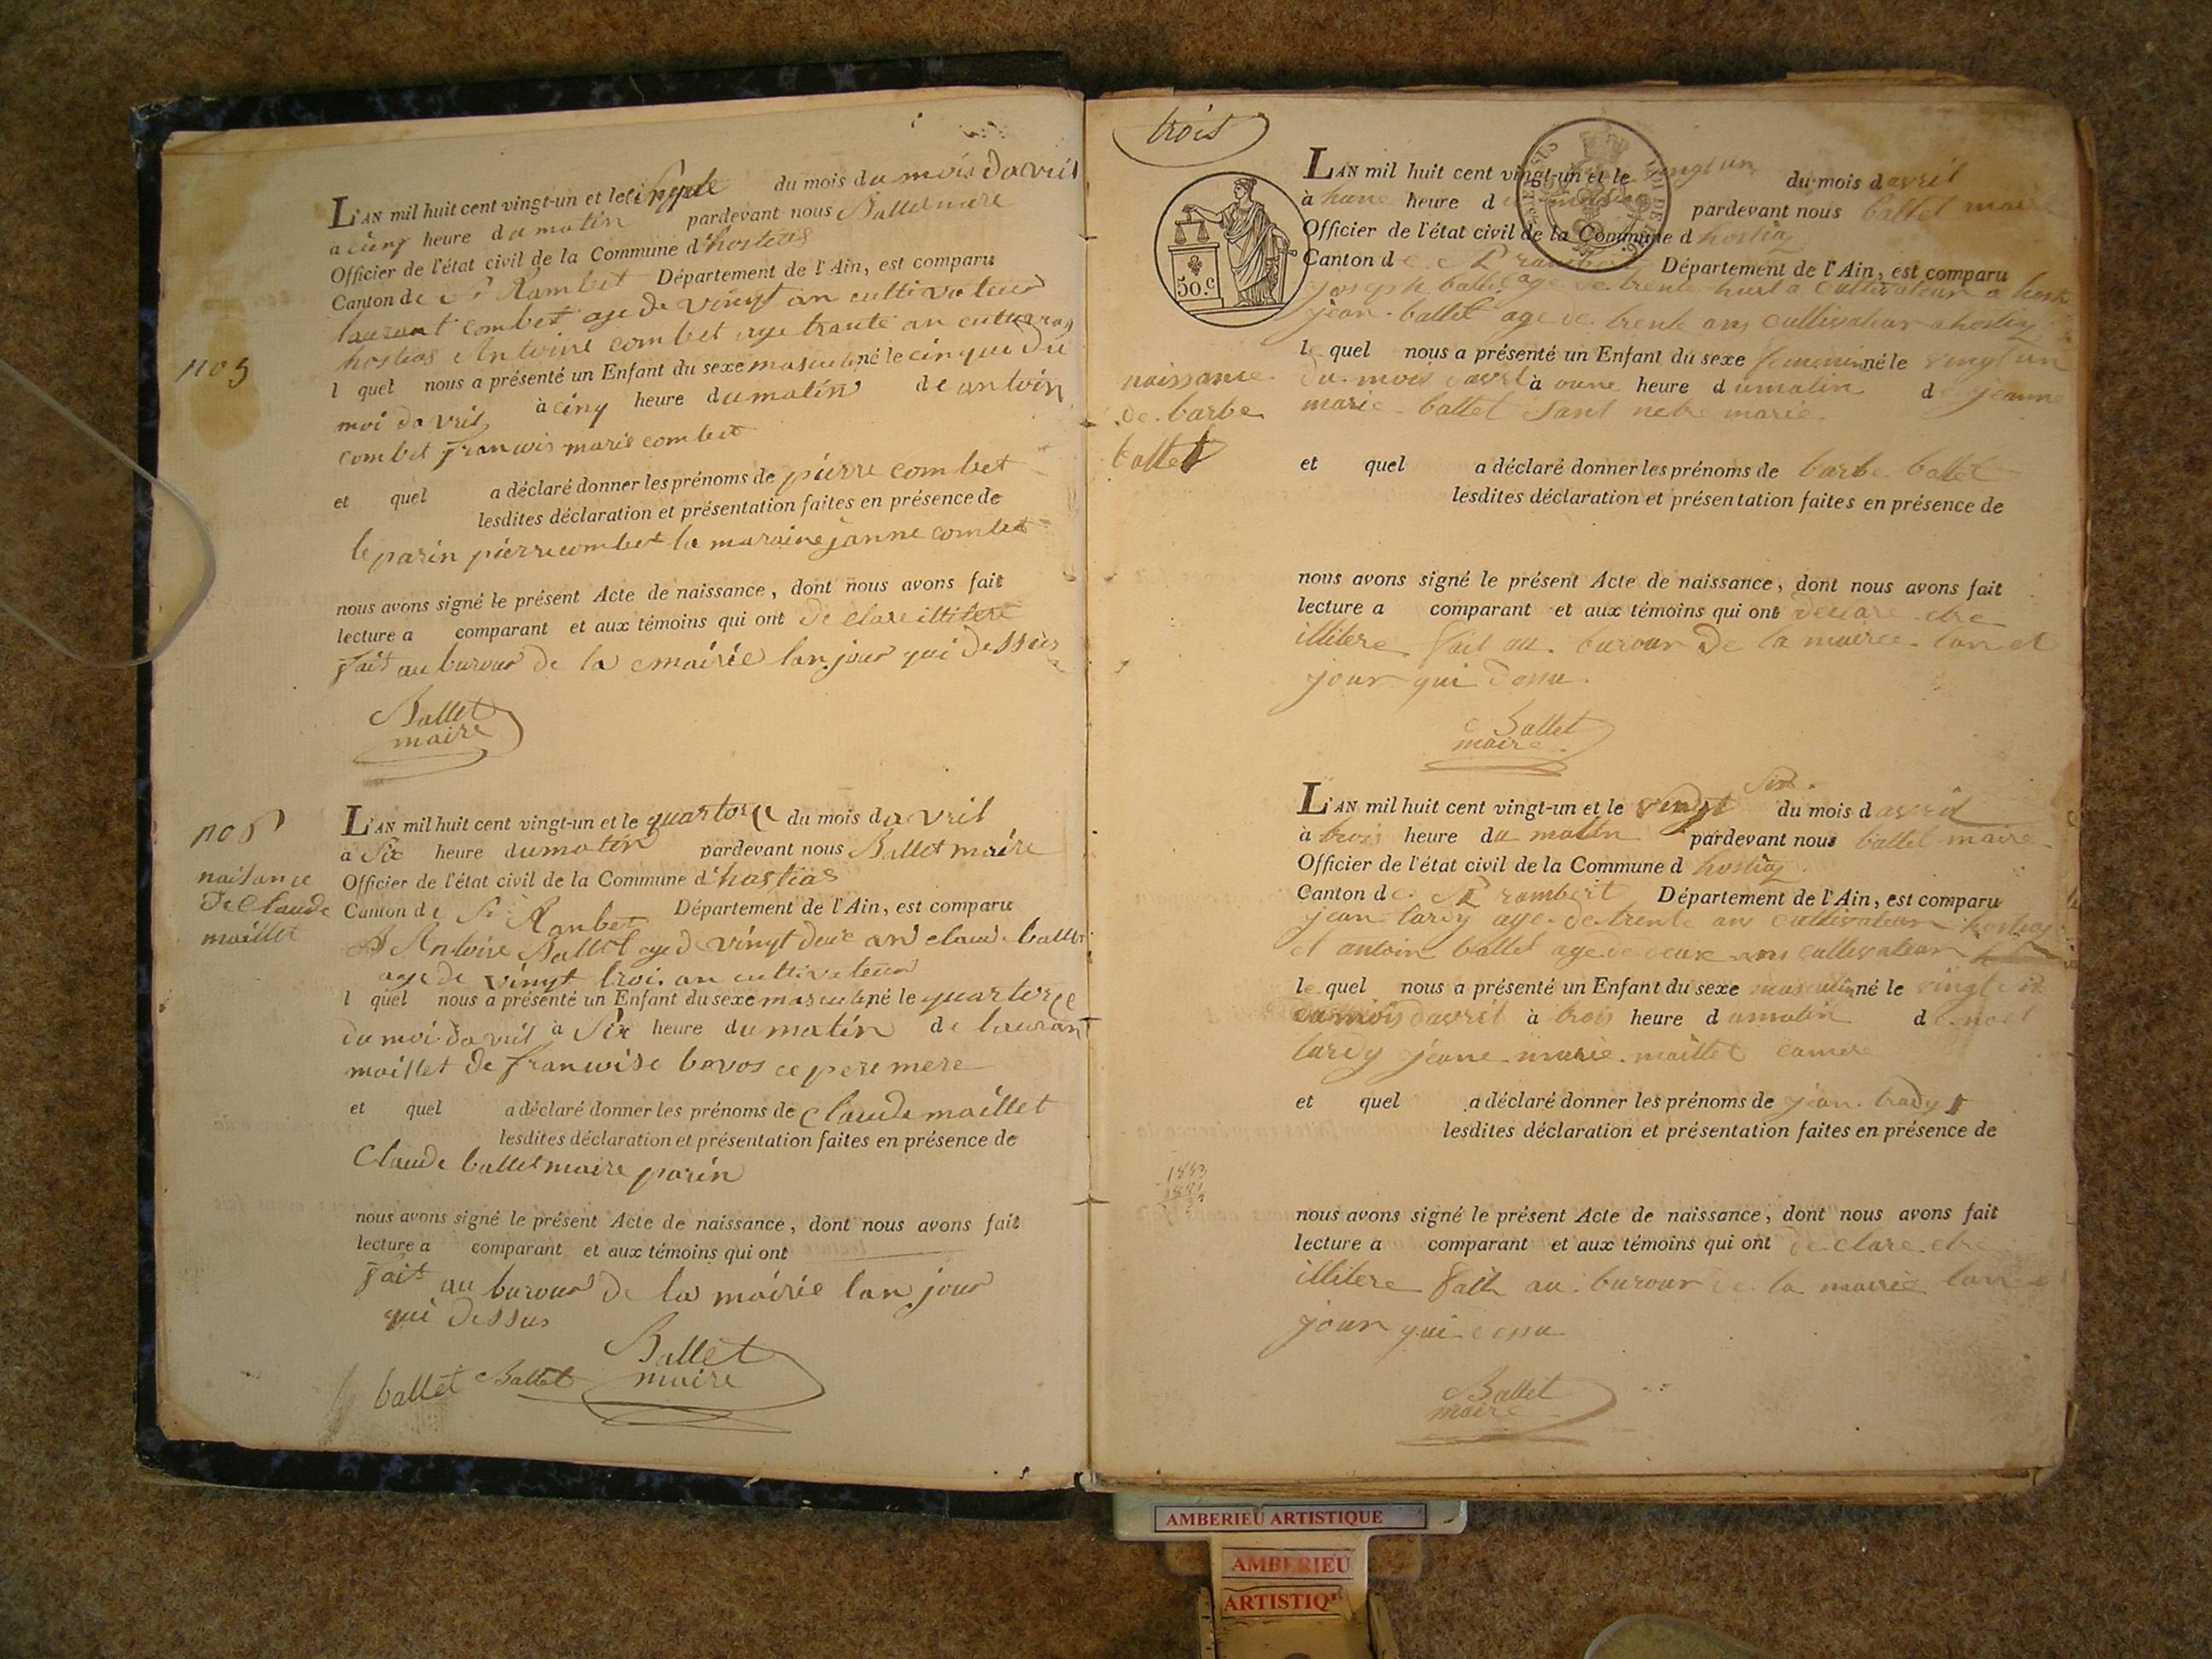 L'AN mil huit cent vingt-un et le du mois du mois davril
a cinq heure du matin pardevant nous Ballet maire
Officier de l'état civil de la Commune d'hostias
Canton de St Rambet Département de l'Ain, est comparu
laurant combet age de vingt an cultivateur
hostias Antoine combet age trante an
no 5
l quel nous a présenté un Enfant du sexe masculin né le cinque du
moi davril à cinq heure du matin de antoin
combet francois marie combet
et quel a déclaré donner les prénoms de pierre combet
lesdites déclaration et présentation faites en présence de
le parin pierre combet la maraine janne combet
nous avons signé le présent Acte de naissance, dont nous avons fait
lecture a comparant et aux témoins qui ont de clare illitere
fait au burour de la mairie lan jour qui dessus
Ballet
maire
no 6
naisance
de Claude
maillet
L'AN mil huit cent vingt-un et le quatorze du mois davril
a Six heure du matin pardevant nous Ballet maire
Officier de l'état civil de la Commune d'hastias
Canton de St Ranbet Département de l'Ain, est comparu
Antoine Ballet age de vingt deux an claude ballet
age de vingt trois an cultivateur
l quel nous a présenté un Enfant du sexe masculin né le quartorze
du moi davril à Six heure du matin de laurant
maillet de francoise bovos ce pere mere
et quel a déclaré donner les prénoms de Claude maillet
lesdites déclaration et présentation faites en présence de
Claude ballet maire parin
nous avons signé le présent Acte de naissance, dont nous avons fait
lecture a comparant et aux témoins qui ont
fait au burour de la mairie lan jour
qui dessus
Ballet
maire
ballet Ballet
trois
50.c
L'AN mil huit cent vingt-un et le vingt un du mois davril
à hune heure du matin pardevant nous ballet maire
Officier de l'état civil de la Commune d hostiaz
Canton de St rambert Département de l'Ain, est comparu
joseph ballet age de trente huit a cultivateur a
jean ballet age de trente ans cultivateur a hostiaz
le quel nous a présenté un Enfant du sexe feminin né le vingt un
du mois davril à oune heure du matin de jeanne
marie ballet sant netre marie
naissance
de barbe
ballet
et quel a déclaré donner les prénoms de barbe ballet
lesdites déclaration et présentation faites en présence de
nous avons signé le présent Acte de naissance, dont nous avons fait
lecture a comparant et aux témoins qui ont declare etre
illitere fait au burour de la mairie lan et
jour qui desu
Ballet
maire
L'AN mil huit cent vingt-un et le vingt six du mois davril
à trois heure du matin pardevant nous ballet maire
Officier de l'état civil de la Commune d hostiaz
Canton de St rambert Département de l'Ain, est comparu
jean tardy age de trente ans cultivateur hostiaz
et antoin ballet age de deux ans cultivateur
le quel nous a présenté un Enfant du sexe masculin né le vingt six
du mois davril à trois heure du matin de noel
tardy jeane marie maillet
et quel a déclaré donner les prénoms de jean trady
lesdites déclaration et présentation faites en présence de
nous avons signé le présent Acte de naissance, dont nous avons fait
lecture a comparant et aux témoins qui ont de clare etre
illitere fait au burour de la mairie lan et
jour qui desu
Ballet
maire
AMBERIEU ARTISTIQUE
AMBERIEU
ARTISTIQ